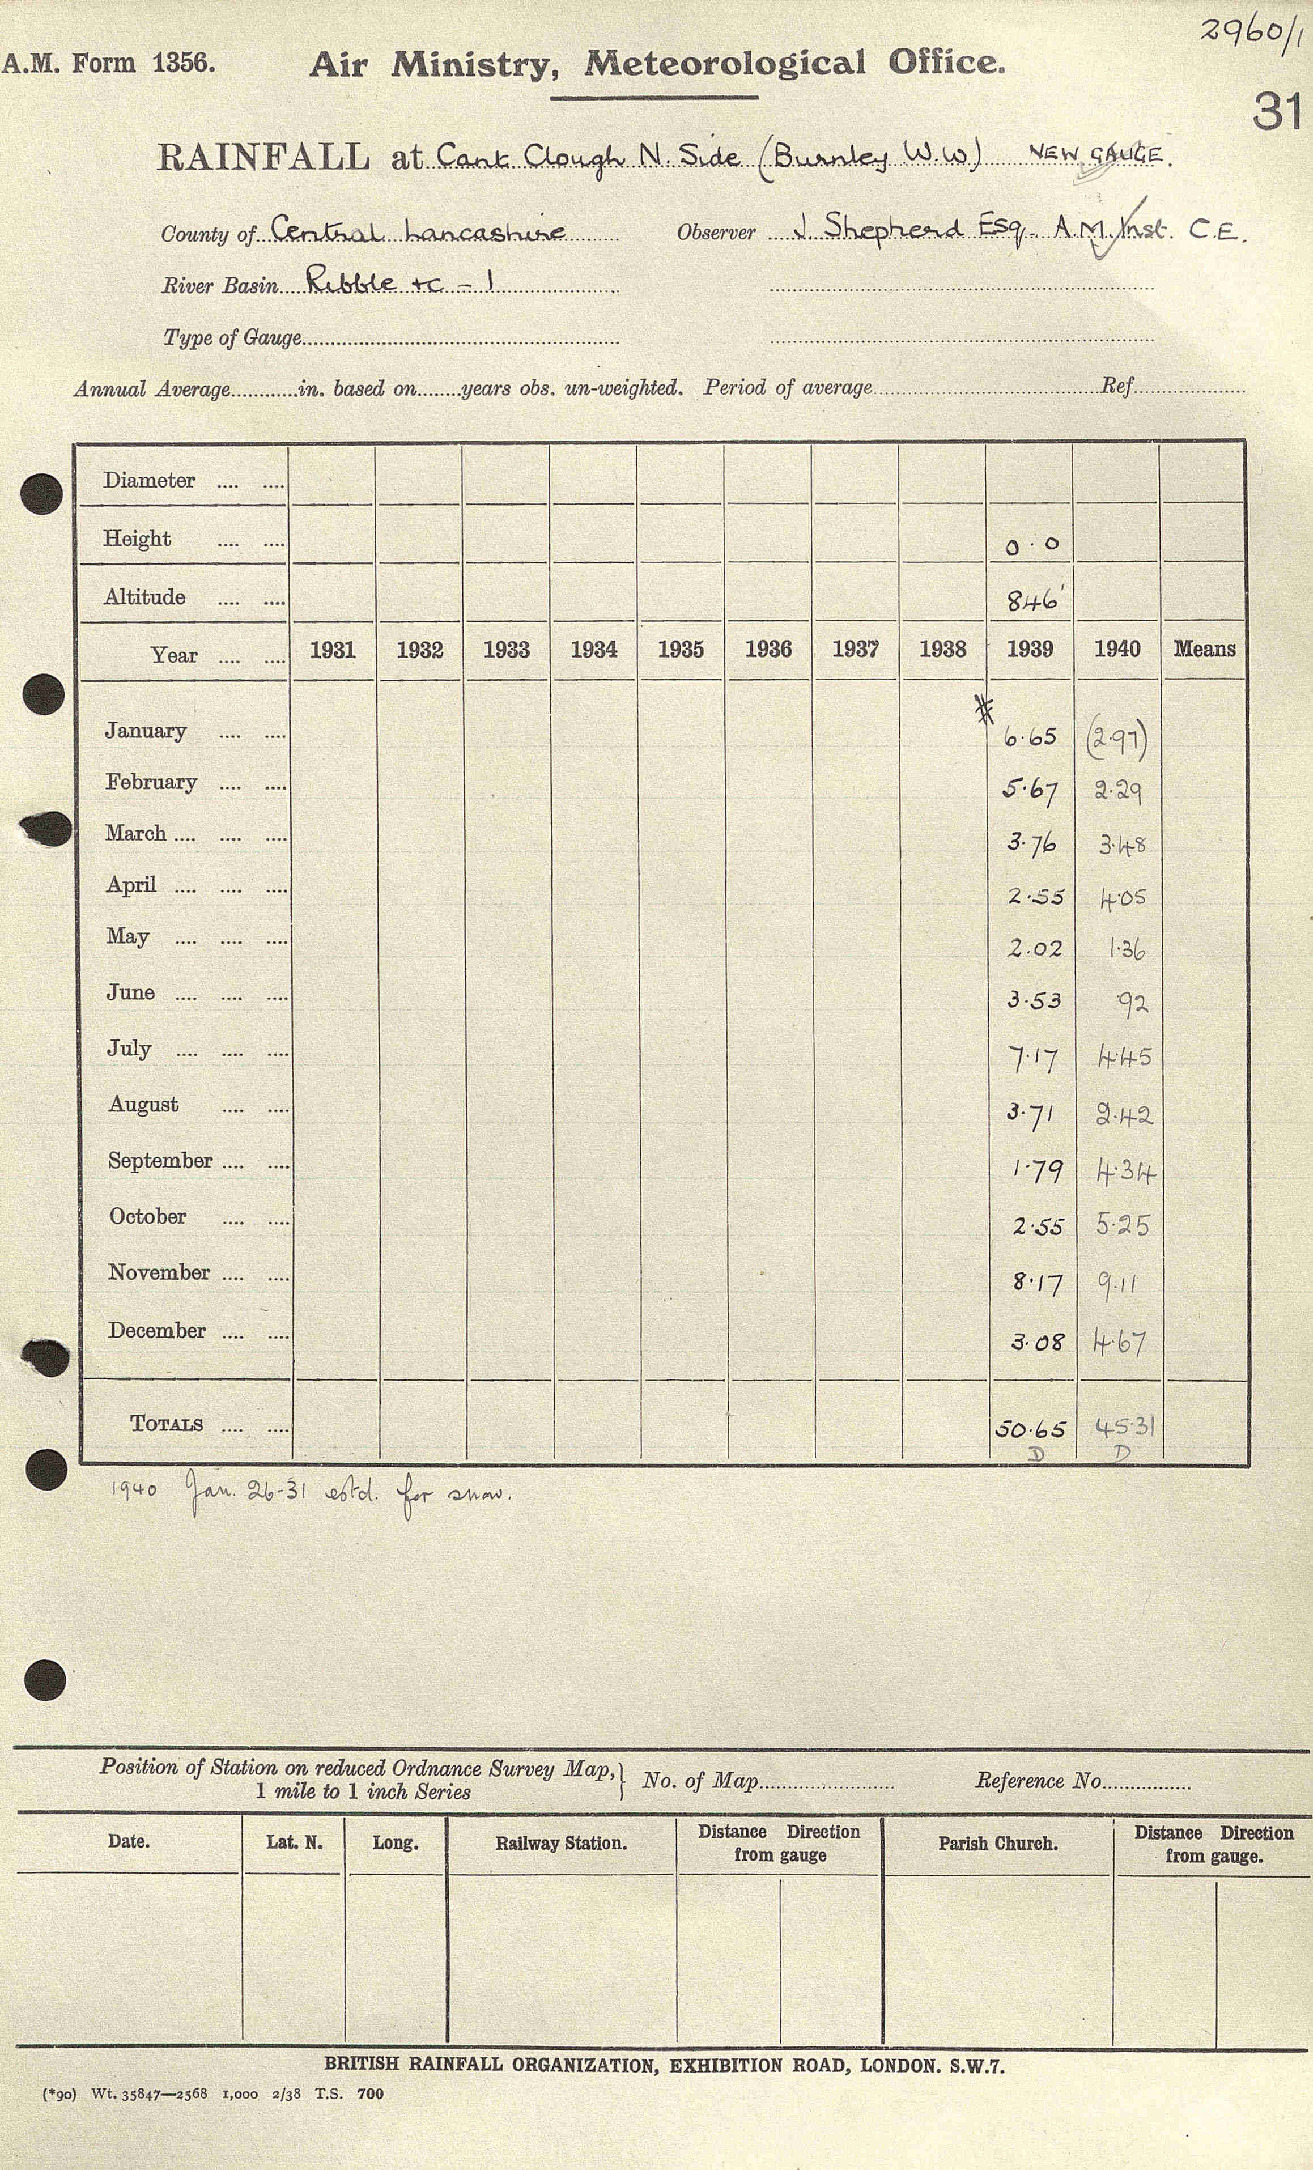 2960/1
A.M. Form 1356. Air Ministry, Meteorological Office.
31
RAINFALL at Cant Clough N. Side (Burnley W.W) NEW GAUGE.
County of Central Lancashire Observer J. Shepherd Esq. A.M. Inst. C.E.
River Basin Ribble +c - 1
Type of Gauge
Annual Average in. based on years obs. un-weighted. Period of average Ref
Diameter .... ....
Height .... .... 0.0
Altitude .... .... 846'
Year .... .... 1931 1932 1933 1934 1935 1936 1937 1938 1939 1940 Means
January .... .... 6.65 (2.97)
February .... .... 5.67 2.29
March .... .... .... 3.76 3.48
April .... .... .... 2.55 4.05
May .... .... .... 2.02 1.36
June .... .... .... 3.53 .92
July .... .... .... 7.17 4.45
August .... .... 3.71 2.42
September .... .... 1.79 4.34
October .... .... 2.55 5.25
November .... .... 8.17 9.11
December .... .... 3.08 4.67
TOTALS .... .... 50.65 45.31
D D
1940 Jan. 26-31 estd. for snow.
Position of Station on reduced Ordnance Survey Map,} No. of Map Reference No.
1 mile to 1 inch Series
Date. Lat. N. Long. Railway Station. Distance Direction from gauge Parish Church. Distance Direction from gauge.
BRITISH RAINFALL ORGANIZATION, EXHIBITION ROAD, LONDON. S.W.7.
(*90) Wt. 35847—2568 1,000 2/38 T.S. 700